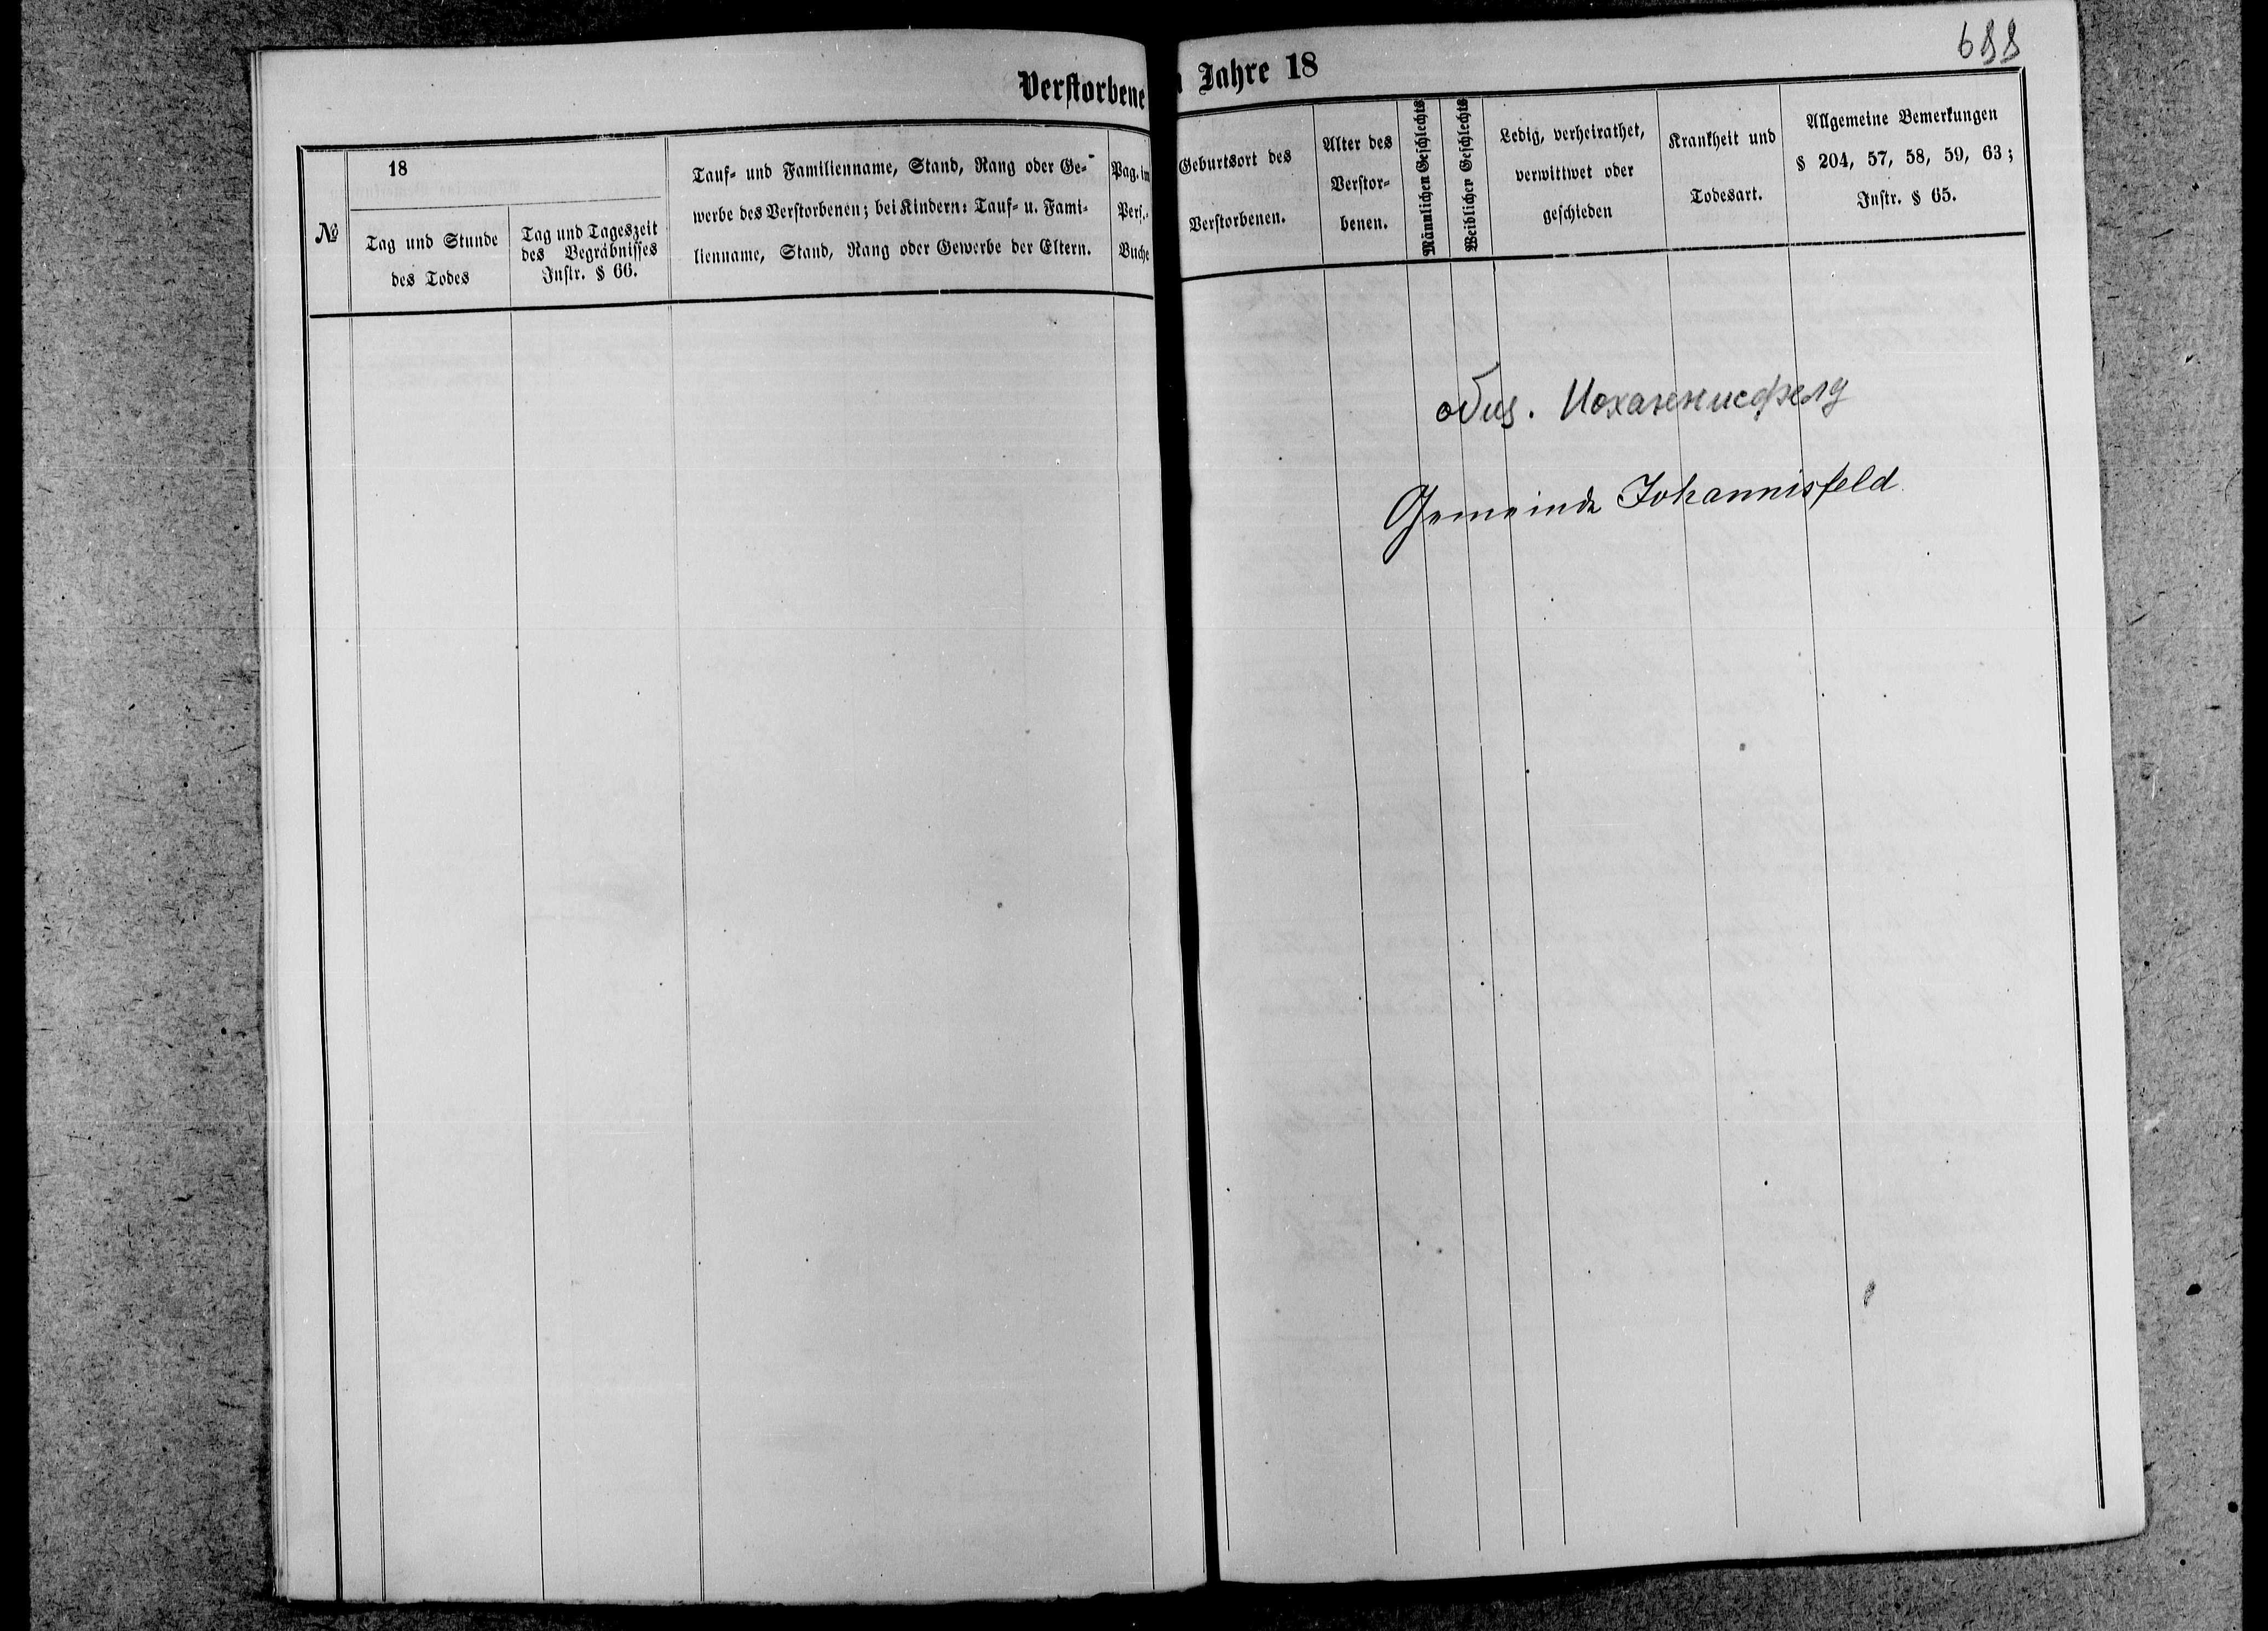 688
Verstorbene
n Jahre 18
№
18
Tag und Stunde
des Todes
Tag und Tageszeit
des Begräbnisses
Instr. § 66.
Tauf- und Familienname, Stand, Rang oder Ge-
werbe des Verstorbenen; bei Kindern: Tauf- u. Fami-
lienname, Stand, Rang oder Gewerbe der Eltern.
Pag. im
Pers.-
Buche
Geburtsort des
Verstorbenen.
Alter des
Verstor-
benen.
Männlichen Geschlechts
Weiblichen Geschlechts
Ledig, verheirathet,
verwittwet oder
geschieden
Krankheit und
Todesart.
Allgemeine Bemerkungen
§ 204, 57, 58, 59, 63;
Instr. § 65.
общ. Иоханнисфелд
Gemeinde Johannisfeld